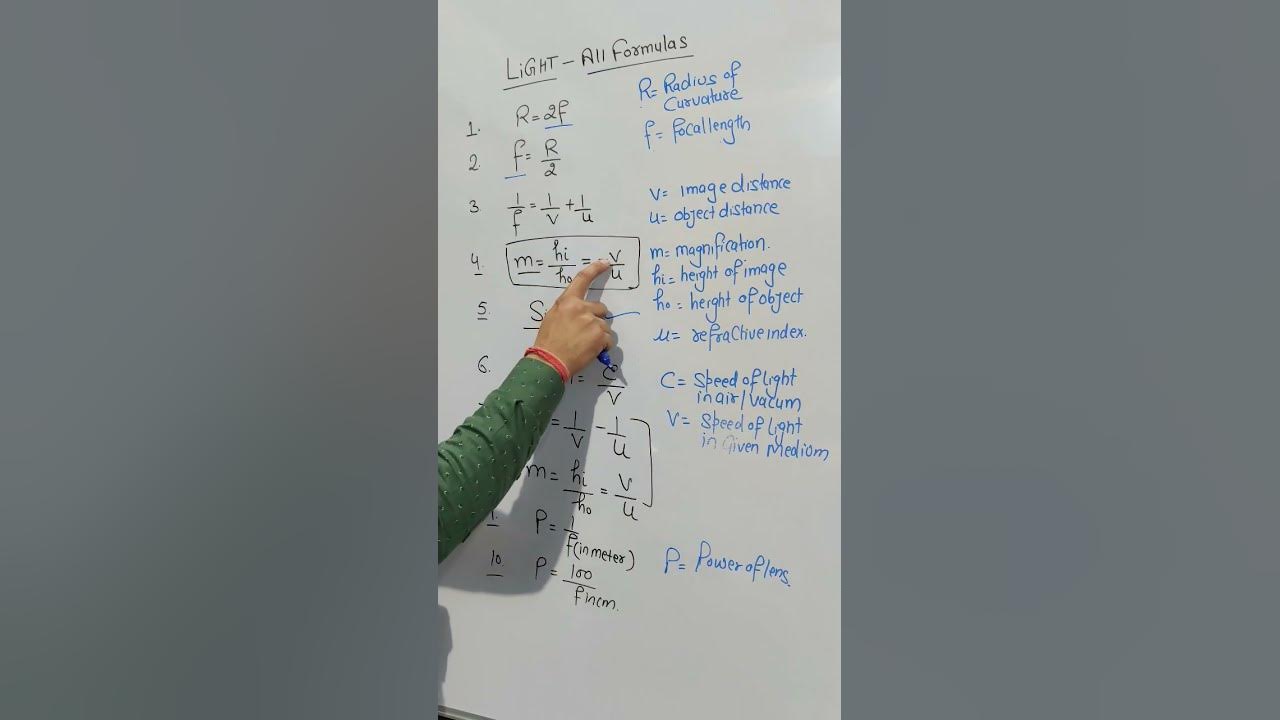 LiGHT - All Formulas
1. R = 2f
2. f = R/2
3. 1/f = 1/v + 1/u
4. m = hi/ho = -v/u
5.
6. = C/v
= 1/v - 1/u
m = hi/ho = v/u
P = 1/f (in meter)
10. P = 100/f in cm.
R = Radius of
Curvature
f = focal length
V = image distance
u = object distance
m = magnification.
hi = height of image
ho = height of object
μ = refraCtive index.
C = Speed of light
in air / vacum
V = Speed of light
in Given Mediom
P = Power of lens.